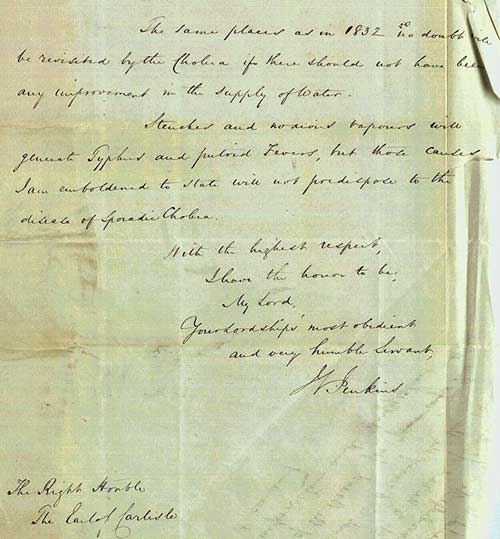 The same places as in 1832 no doubt will
be revisited by the Cholera if there should not have been
any improvement in the supply of Water.
Stenches and noxious vapours will
generate Typhus and putrid Fevers, but those causes
I am emboldened to state will not predespose to the
disease of Sporadic Cholera.
With the highest respect,
I have the honor to be,
My Lord,
Your Lordship's most obedient
and very humble Servant,
Jenkins.
The Right Honble
The Earl of Carlisle